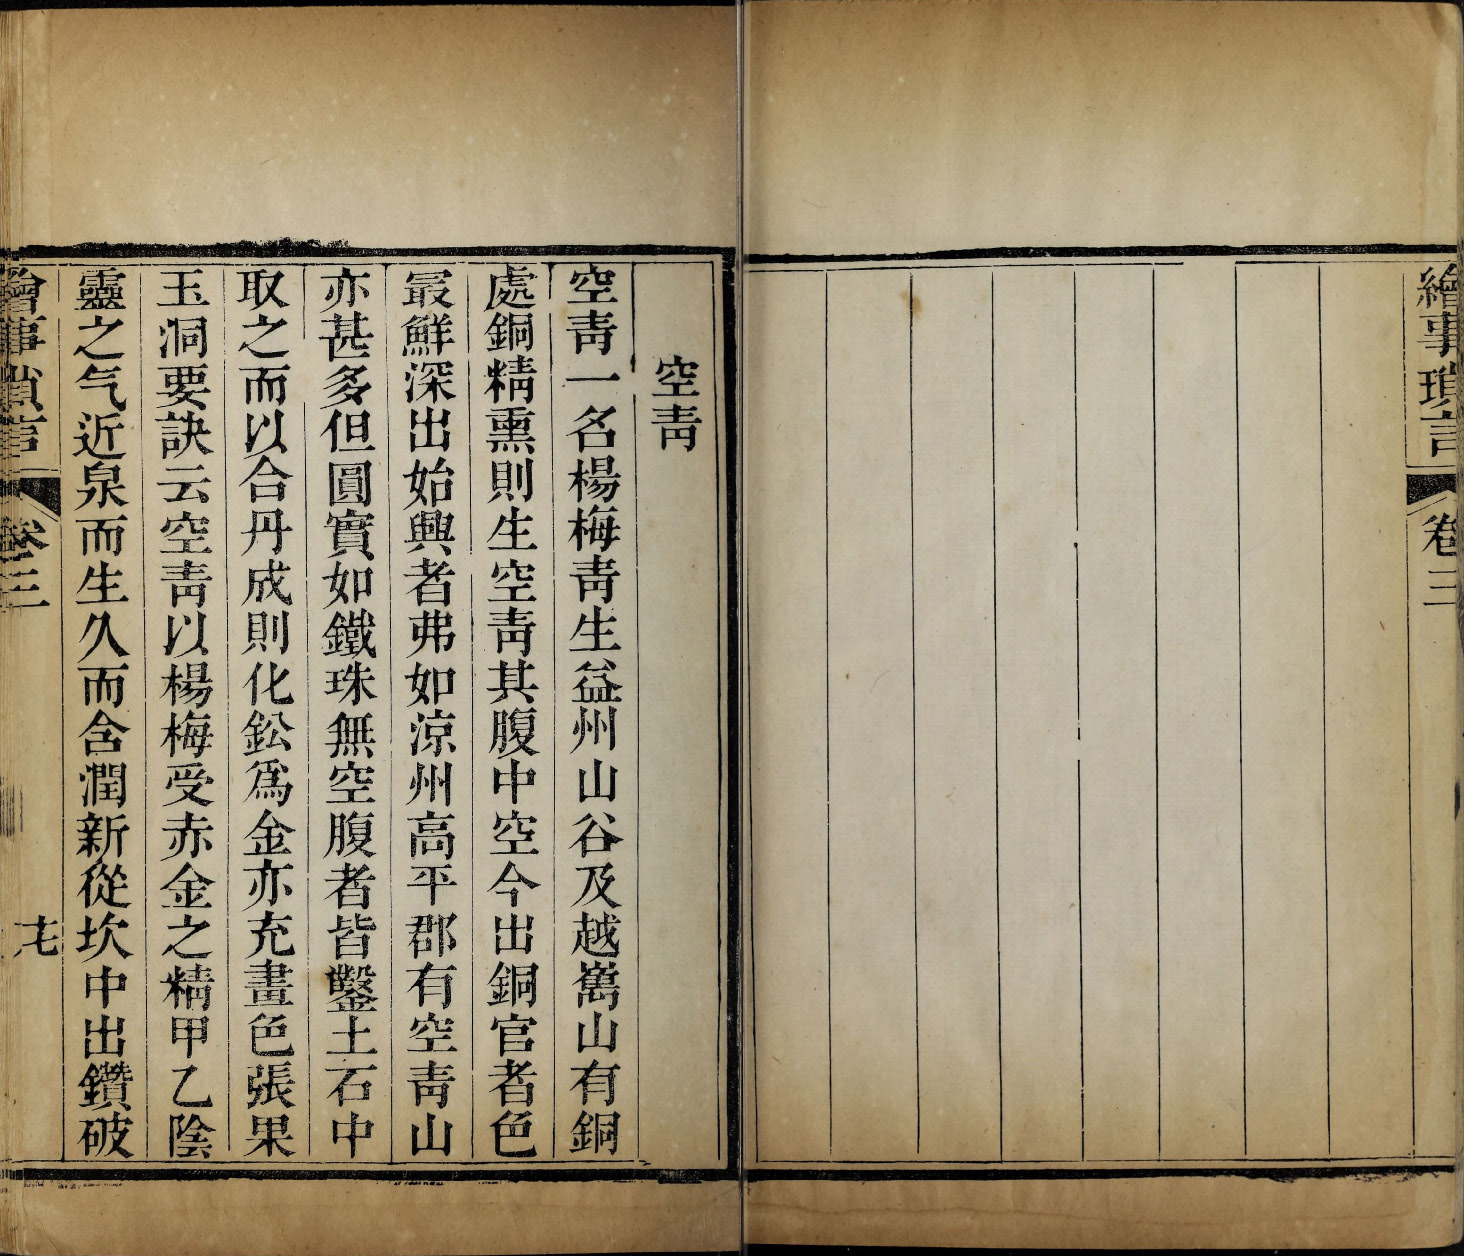 繪事瑣言
卷三
空靑
空靑一名楊梅靑生益州山谷及越嶲山有銅
處銅精熏則生空靑其腹中空今出銅官者色
最鮮深出始興者弗如涼州高平郡有空靑山
亦甚多但圓實如鐵珠無空腹者皆鑿土石中
取之而以合丹成則化鈆爲金亦充畫色張果
玉洞要訣云空靑以楊梅受赤金之精甲乙陰
靈之气近泉而生久而含潤新從坎中出鑽破
繪事瑣言
卷三